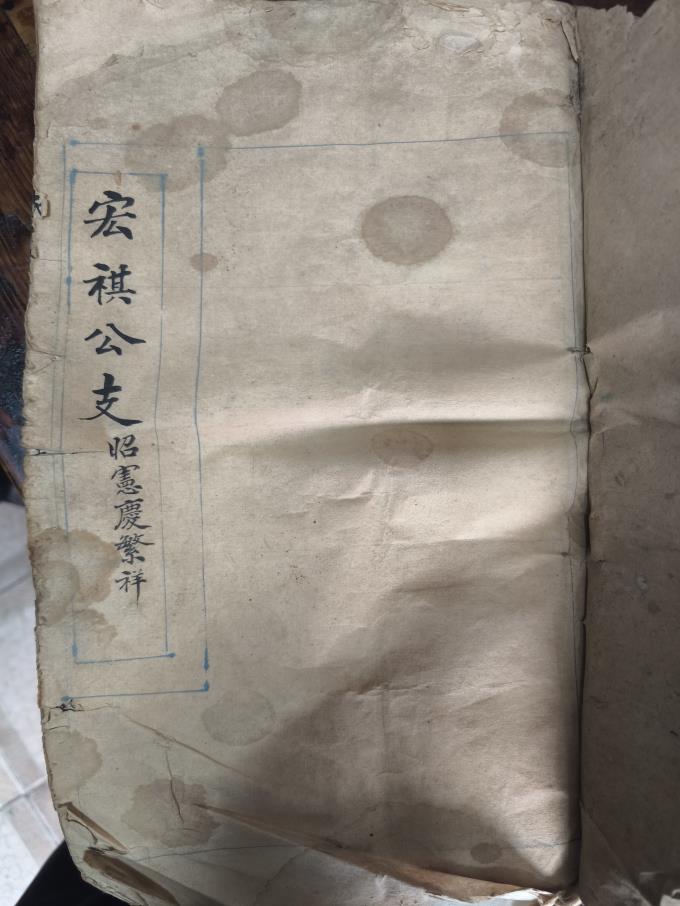 宏祺公支
昭憲慶繁祥